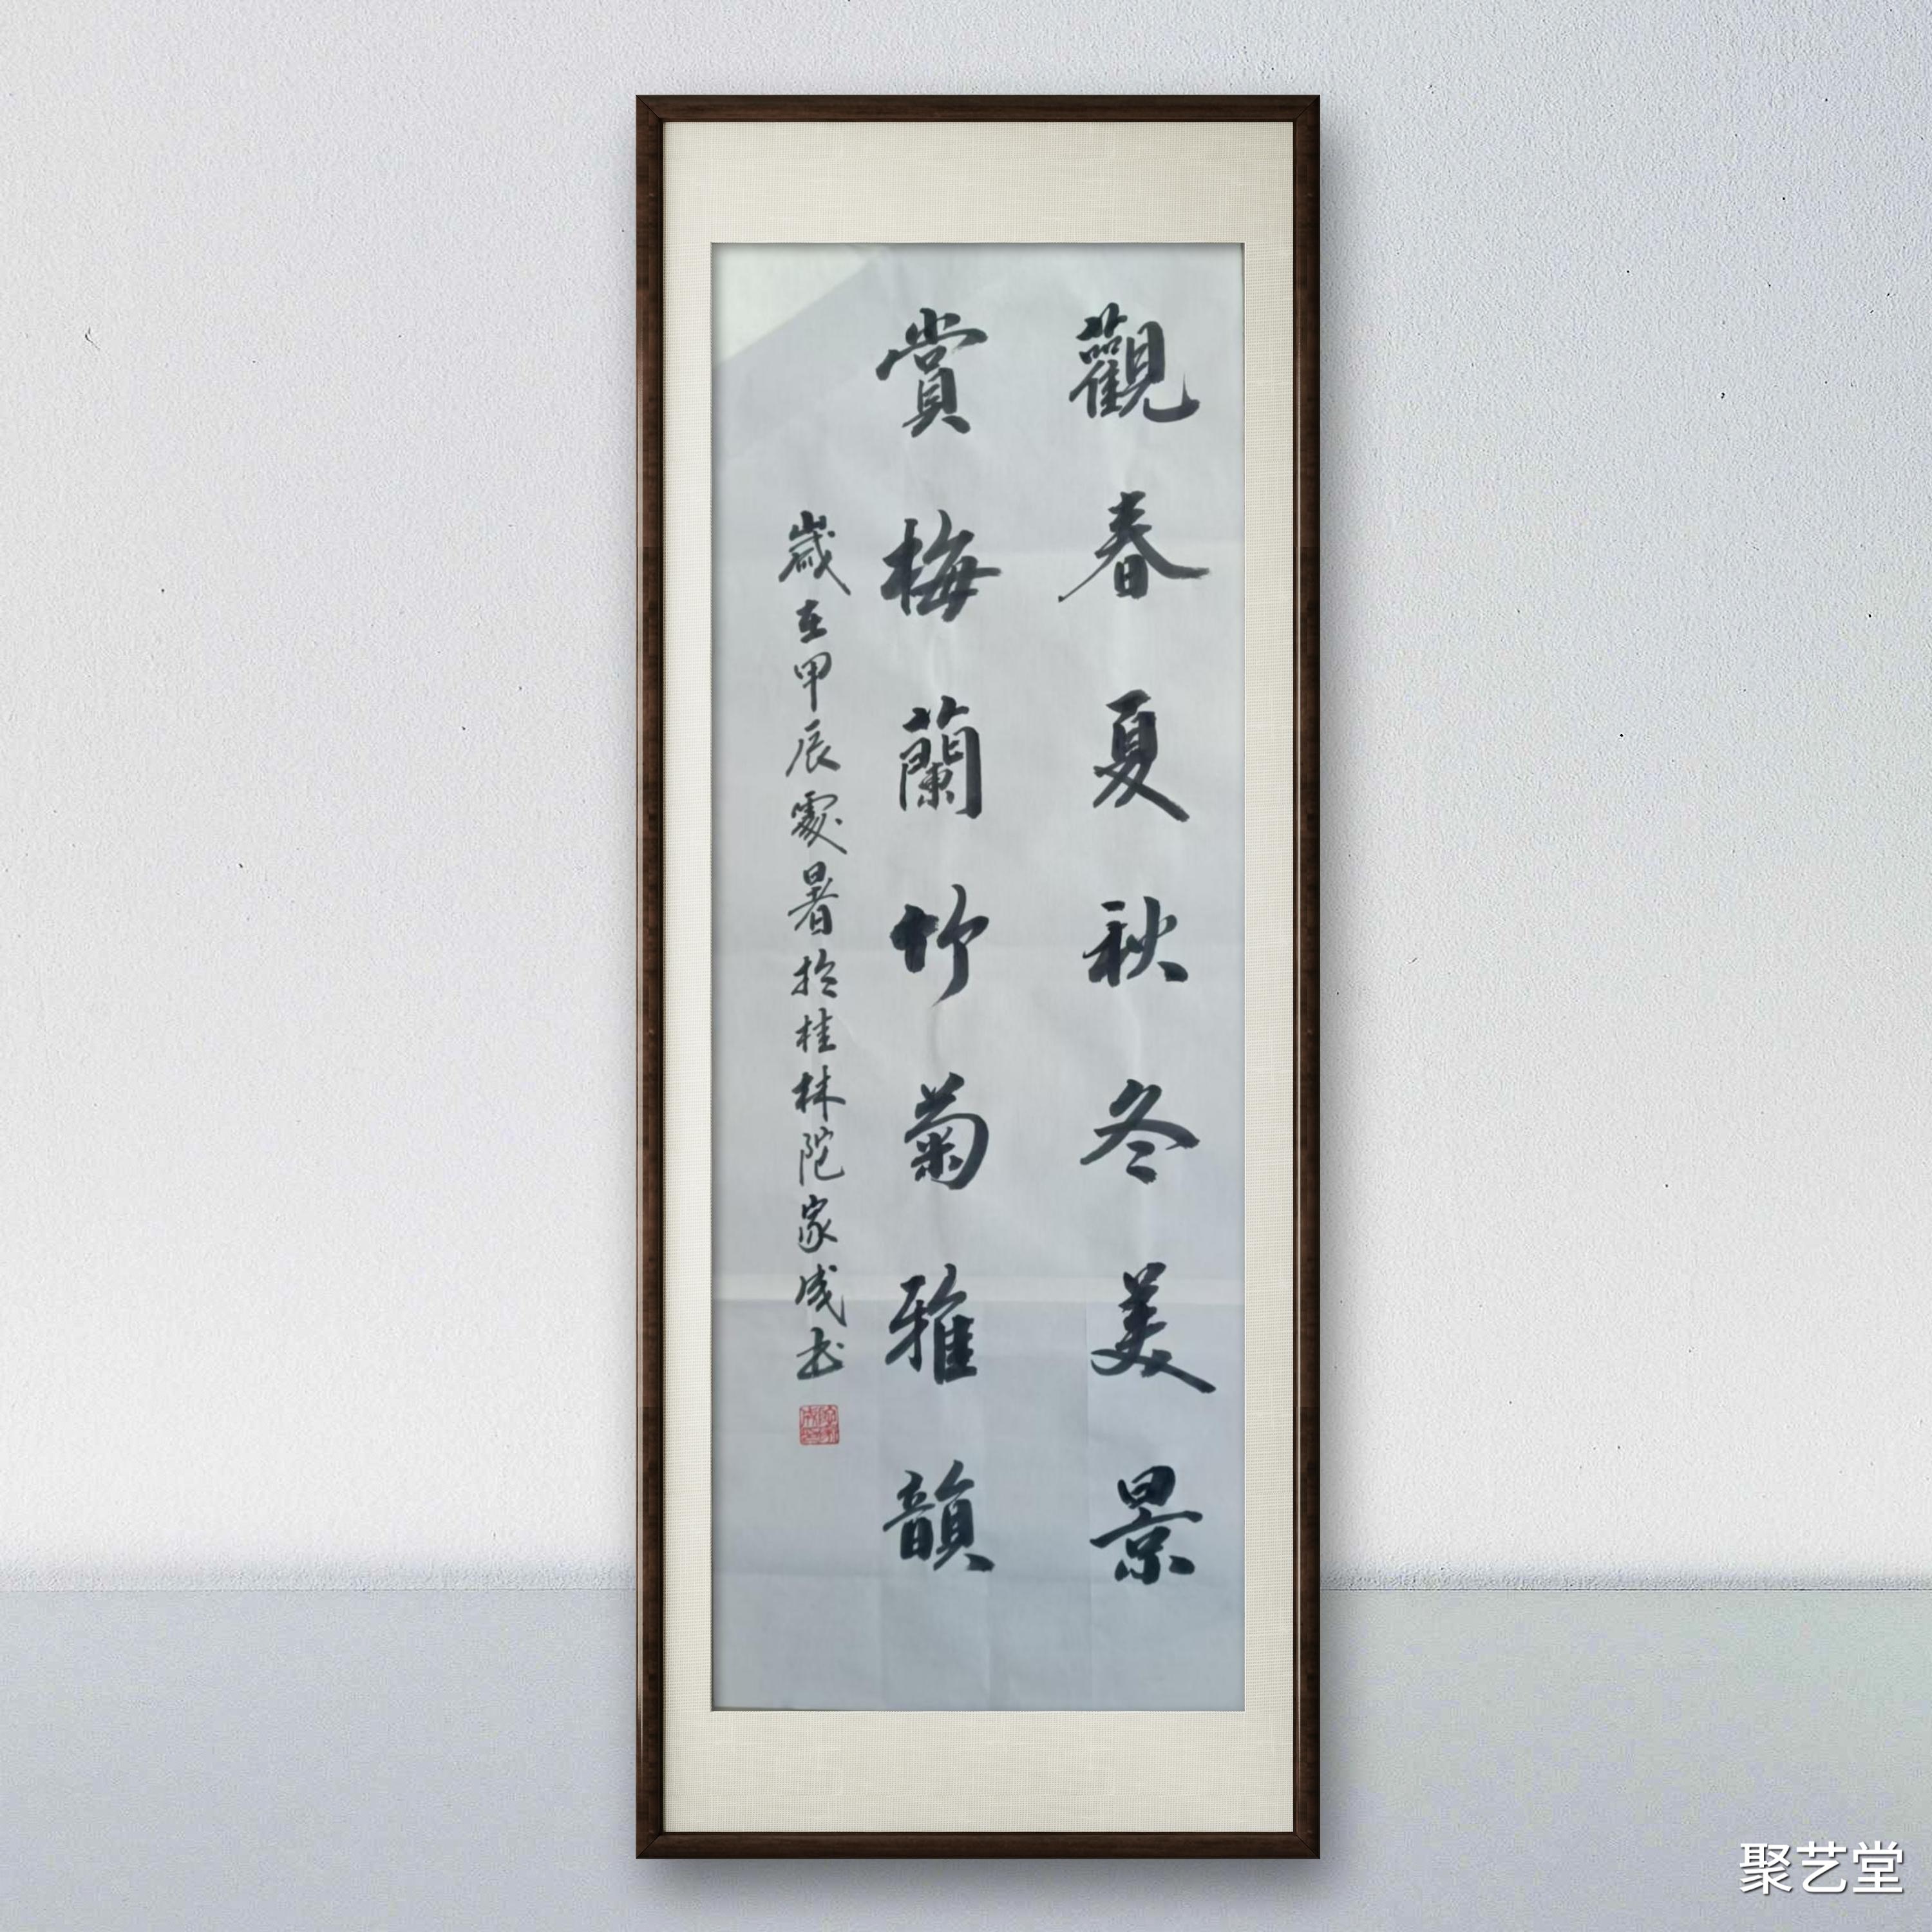 觀春夏秋冬美景
賞梅蘭竹菊雅韻
歲在甲辰處暑於桂林陀家成书
聚艺堂